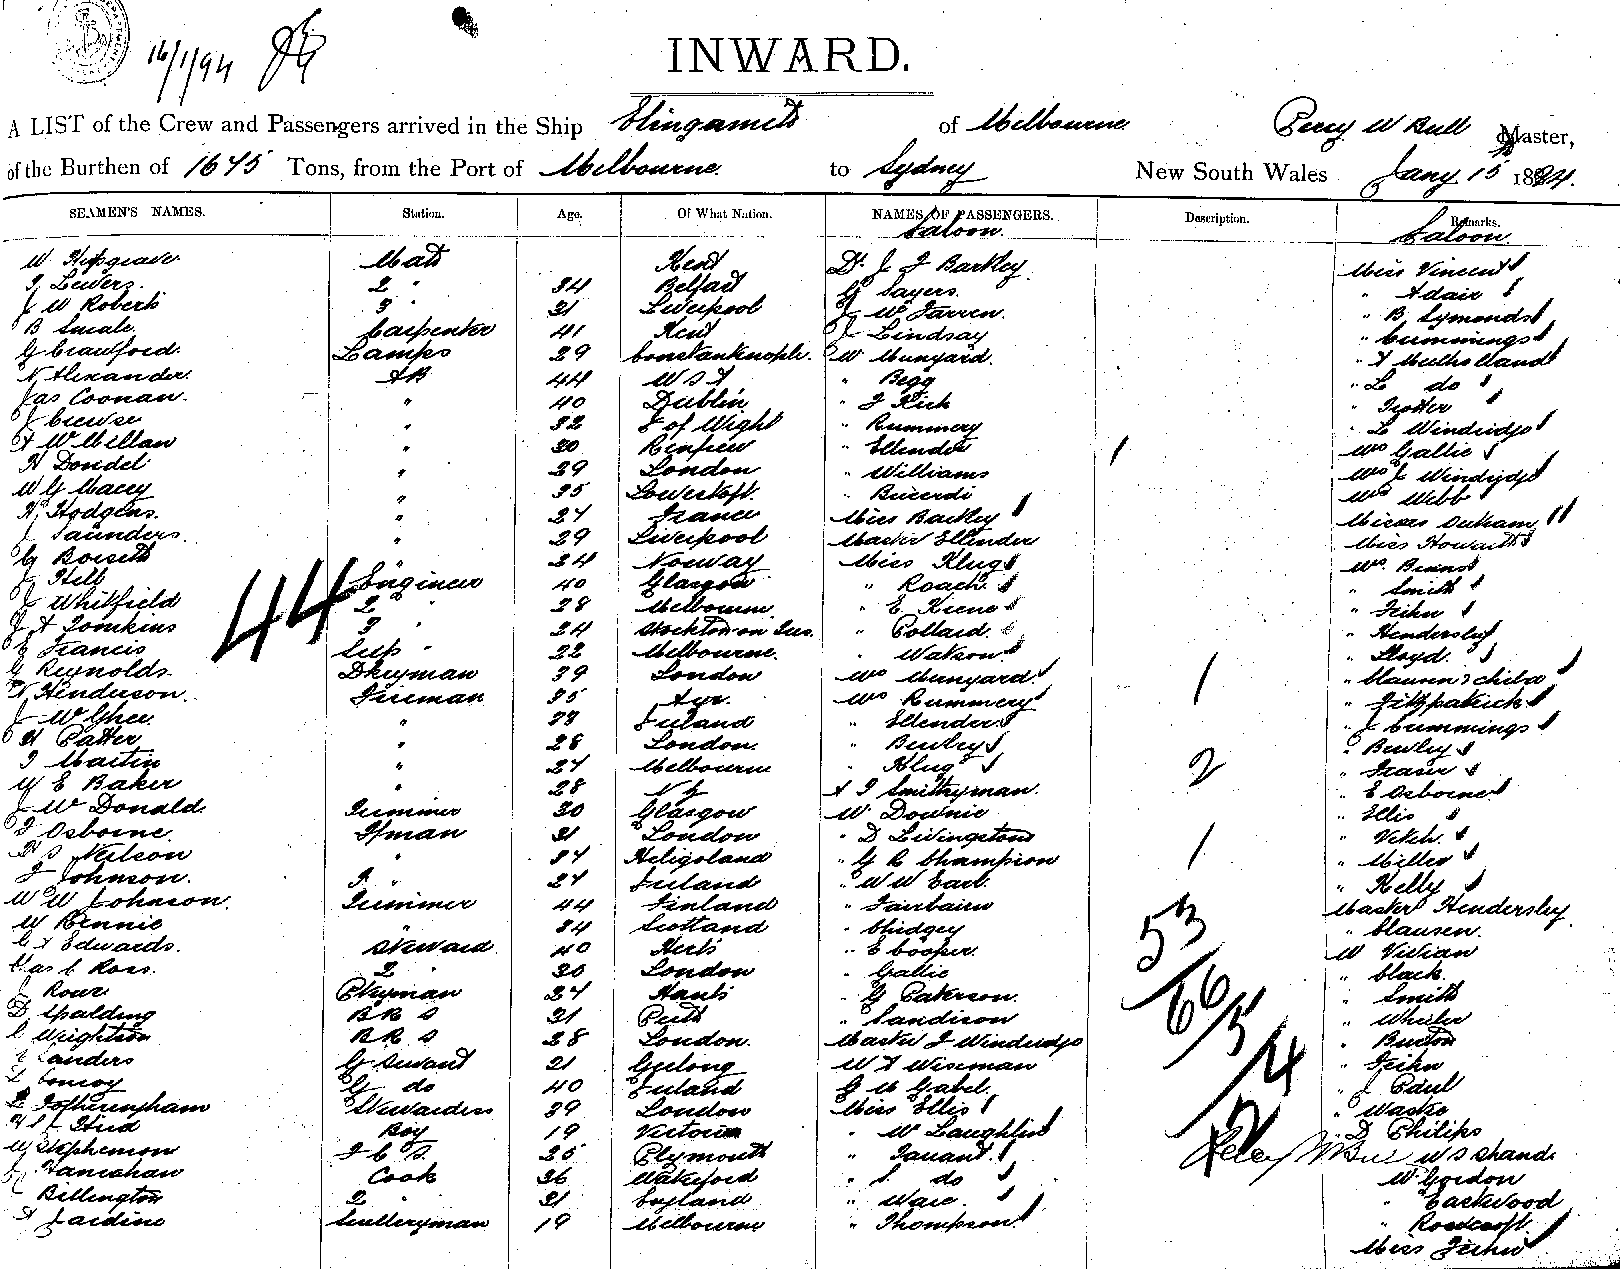 16/1/94
INWARD.
A LIST of the Crew and Passengers arrived in the Ship Elingamite of Melbourne Percy W Bull Master,
of the Burthen of 1675 Tons, from the Port of Melbourne to Sydney New South Wales Jany 15 1894.
SEAMEN'S NAMES. Station. Age. Of What Nation. NAMES OF PASSENGERS. Description. Remarks.
Saloon. Saloon
W Hipgrave Mate Kent Dr J J Barkley Miss Vincent
Lewers 2 " 34 Belfast G Sayers " Adair
J W Roberts 3 " 31 Liverpool J W Farren " B Symonds
B Smale Carpenter 41 Kent J Lindsay " Cummings
G Crawford Lamps 29 Constantinople W Munyard " A Mulholland
N Alexander AB 44 " Begg " L do
Jas Coonan " 40 Dublin " J Kick " Trotter
J Crewse " 32 I of Wight " Rummery " L Windridge
A W Millan " 30 Renfrew " Ellender 1 Mrs Gallie
H Dondel " 29 London " Williams Mrs J Windridge
W G Macey " 35 Lowestoft " Mrs Webb
H Hodgens " 24 France Miss Barkley Misses Durham
J Saunders " 29 Liverpool Master Ellender Miss Howarth
G Borseth " 34 Norway Miss Klug Mrs Brand
J Hill Engineer 40 Glasgow " Roach " Smith
J Whitfield 2 " 28 Melbourne " E Kiene
J A Tomkins 3 " 24 Stockton on Tees " Pollard " Hendersley
Francis 22 Melbourne " Watson " Lloyd
G Reynolds Dkeyman 39 London Mrs Munyard 1 " Claussen & child
N Henderson Fireman 35 Ayr Mrs Rummery " Fitzpatrick
J W Ghee " 33 Ireland " Ellender " J Cummings
H Patter " 28 London " Bewley " Bewley
T Martin " 24 Melbourne " Klug 2 " Fraser
M E Baker " 28 N Z A J Smithyman " E Osborne
J W Donald Trimmer 30 Glasgow W Downie " Ellis
J Osborne Fman 31 London " D Livingstone " Veitch
Neilson " 34 Heligoland " G R Champion 1 " Miller
J Johnson 24 Ireland " W W Earl " Kelly
W W Johnson Trimmer 44 Finland " Fairbairn Master Hendersley
W Rennie " 34 Scotland " Chidgey 53 " Clausen
C A Edwards Steward 40 Herts " E Cooper W Vivian
Jas C Ross 2 " 30 London " Gallie " Black
J Rowe Pkyman 24 Hants " G Paterson 66 " Smith
D Spalding B R S 21 Perth " Sandison 5 " Wheeler
C Wrightson B R S 28 London Master J Windridge " Burton
Landers G Servant 21 Geelong W A Wiseman 4
L Conroy G do 40 Ireland G M Gabel " J Paul
Fotheringham Stewardess 39 London Miss Ellis
Hird Boy 19 Victoria " W Laughlin " D Philips
W Stephenson 25 Plymouth " Tarrant W S Shand
Hanrahan Cook 36 Waterford " L do W Gordon
Billington 2 " 31 England " Ware " Eastwood
A Jardine Sculleryman 19 Melbourne " Thompson " Rowcroft
44
Percy W Bull
Miss